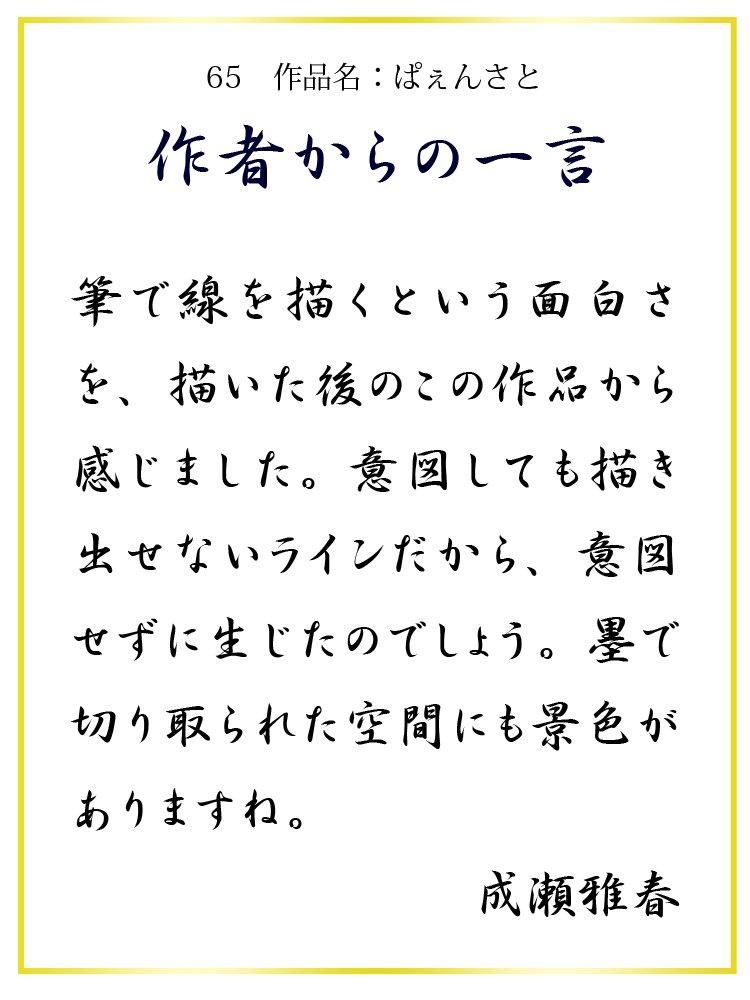 65　作品名：ぱぇんさと
作者からの一言
筆で線を描くという面白さ
を、描いた後のこの作品から
感じました。意図しても描き
出せないラインだから、意図
せずに生じたのでしょう。墨で
切り取られた空間にも景色が
ありますね。
成瀬雅春